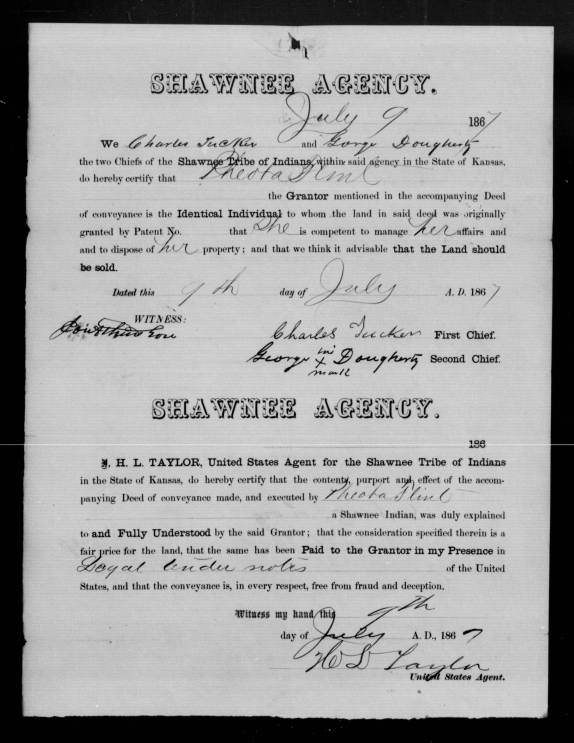 SHAWNEE AGENCY.
July 9 1867
We Charles Tucker and George Dougherty
the two Chiefs of the Shawnee Tribe of Indians, within said agency in the State of Kansas,
do hereby certify that Theota Flint
the Grantor mentioned in the accompanying Deed
of conveyance is the Identical Individual to whom the land in said deed was originally
granted by Patent No. that She is competent to manage her affairs and
and to dispose of her property; and that we think it advisable that the Land should
be sold.
Dated this 9th day of July A. D. 1867
WITNESS:
Charles Tucker First Chief.
George his x mark Dougherty Second Chief.
SHAWNEE AGENCY.
186
I, H. L. TAYLOR, United States Agent for the Shawnee Tribe of Indians
in the State of Kansas, do hereby certify that the contents, purport and effect of the accom-
panying Deed of conveyance made, and executed by Theota Flint
a Shawnee Indian, was duly explained
to and Fully Understood by the said Grantor; that the consideration specified therein is a
fair price for the land, that the same has been Paid to the Grantor in my Presence in
Legal tender notes of the United
States, and that the conveyance is, in every respect, free from fraud and deception.
Witness my hand this 9th
day of July A. D., 1867
H L Taylor
United States Agent.